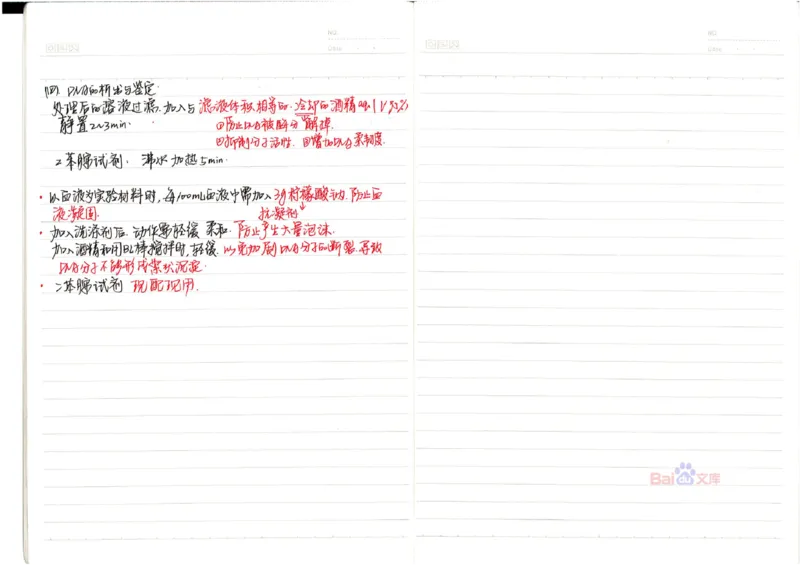 NO.
Date
(四) DNA的析出与鉴定
处理后的溶液过滤,加入与滤液体积相等的,冷却的酒精
静置2~3min. ①防止DNA被酶分解掉.
②抑制分子活性. ③增加DNA柔韧度.
二苯胺试剂: 沸水加热5min.
• 以血液为实验材料时,每100mL血液中需加入3g柠檬酸钠,防止血
液凝固. 抗凝剂
• 加入洗涤剂后,动作要轻缓、柔和,防止产生大量泡沫.
加入酒精和用玻棒搅拌时,轻缓,以免加剧DNA分子的断裂,导致
DNA分子不能形成絮状沉淀.
• 二苯胺试剂 现配现用.
NO.
Date
Baidu文库